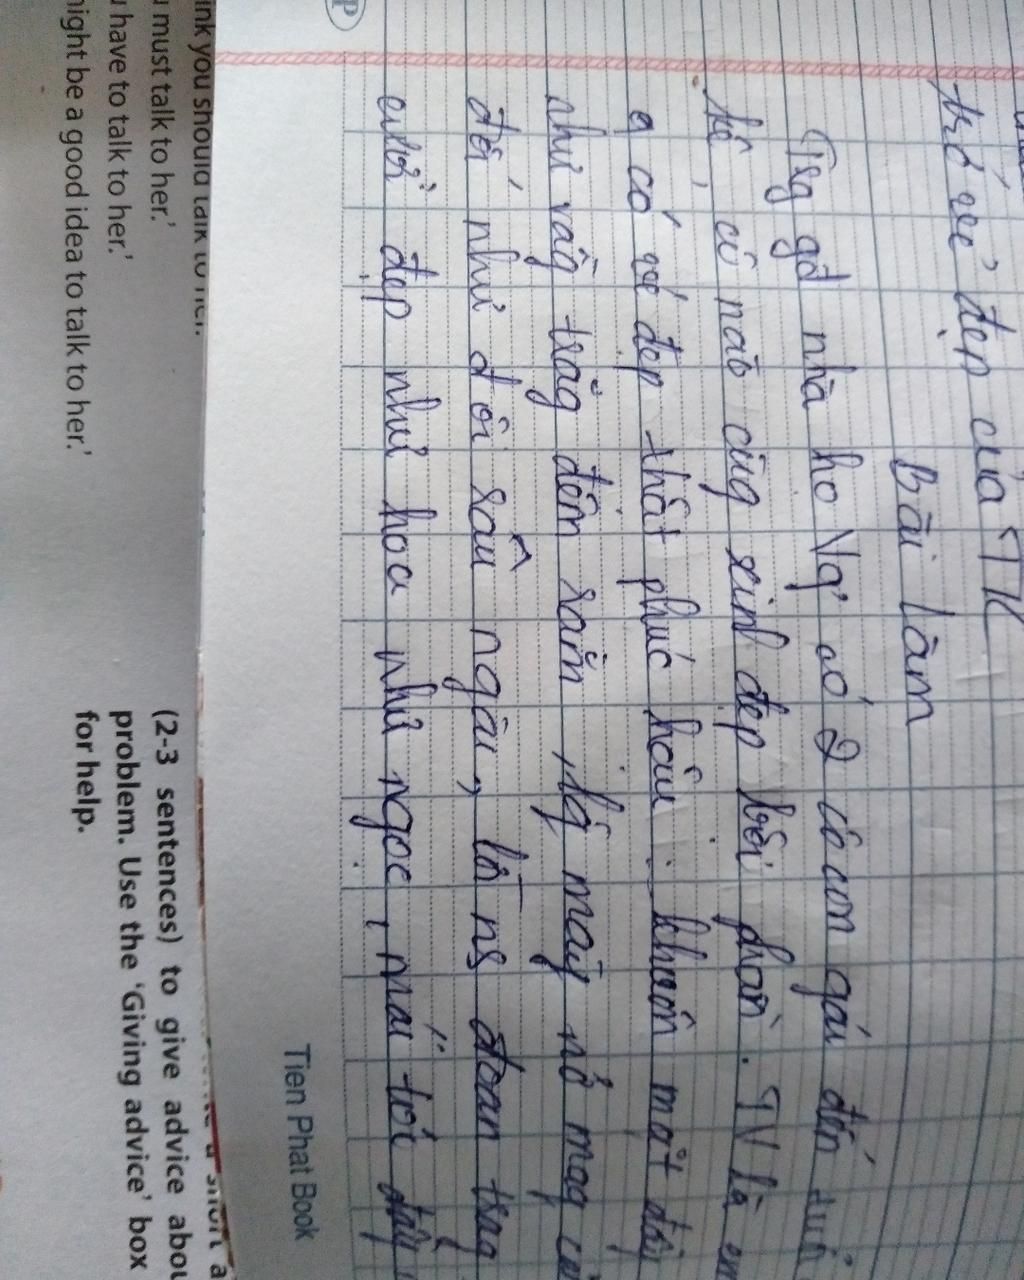 trở vẻ đẹp của TK
Bài làm
Trg gđ nhà họ Vg' có 2 cô cum gái đến tuổi
kê, cô nào cũg xinh đẹp bội phần. TV là em
a có vẻ đẹp thật phúc hậu: khuôn mặt đầy
như vầg trăg đêm rằm, lôg mày nở mag
đới như đôi sâu ngàu, lời ns đoan trag
cười đẹp như hoa như ngọc, mái tóc
Tien Phat Book
ink you should talk to her.
must talk to her.'
have to talk to her.'
might be a good idea to talk to her.'
(2-3 sentences) to give advice abou
problem. Use the 'Giving advice' box
for help.